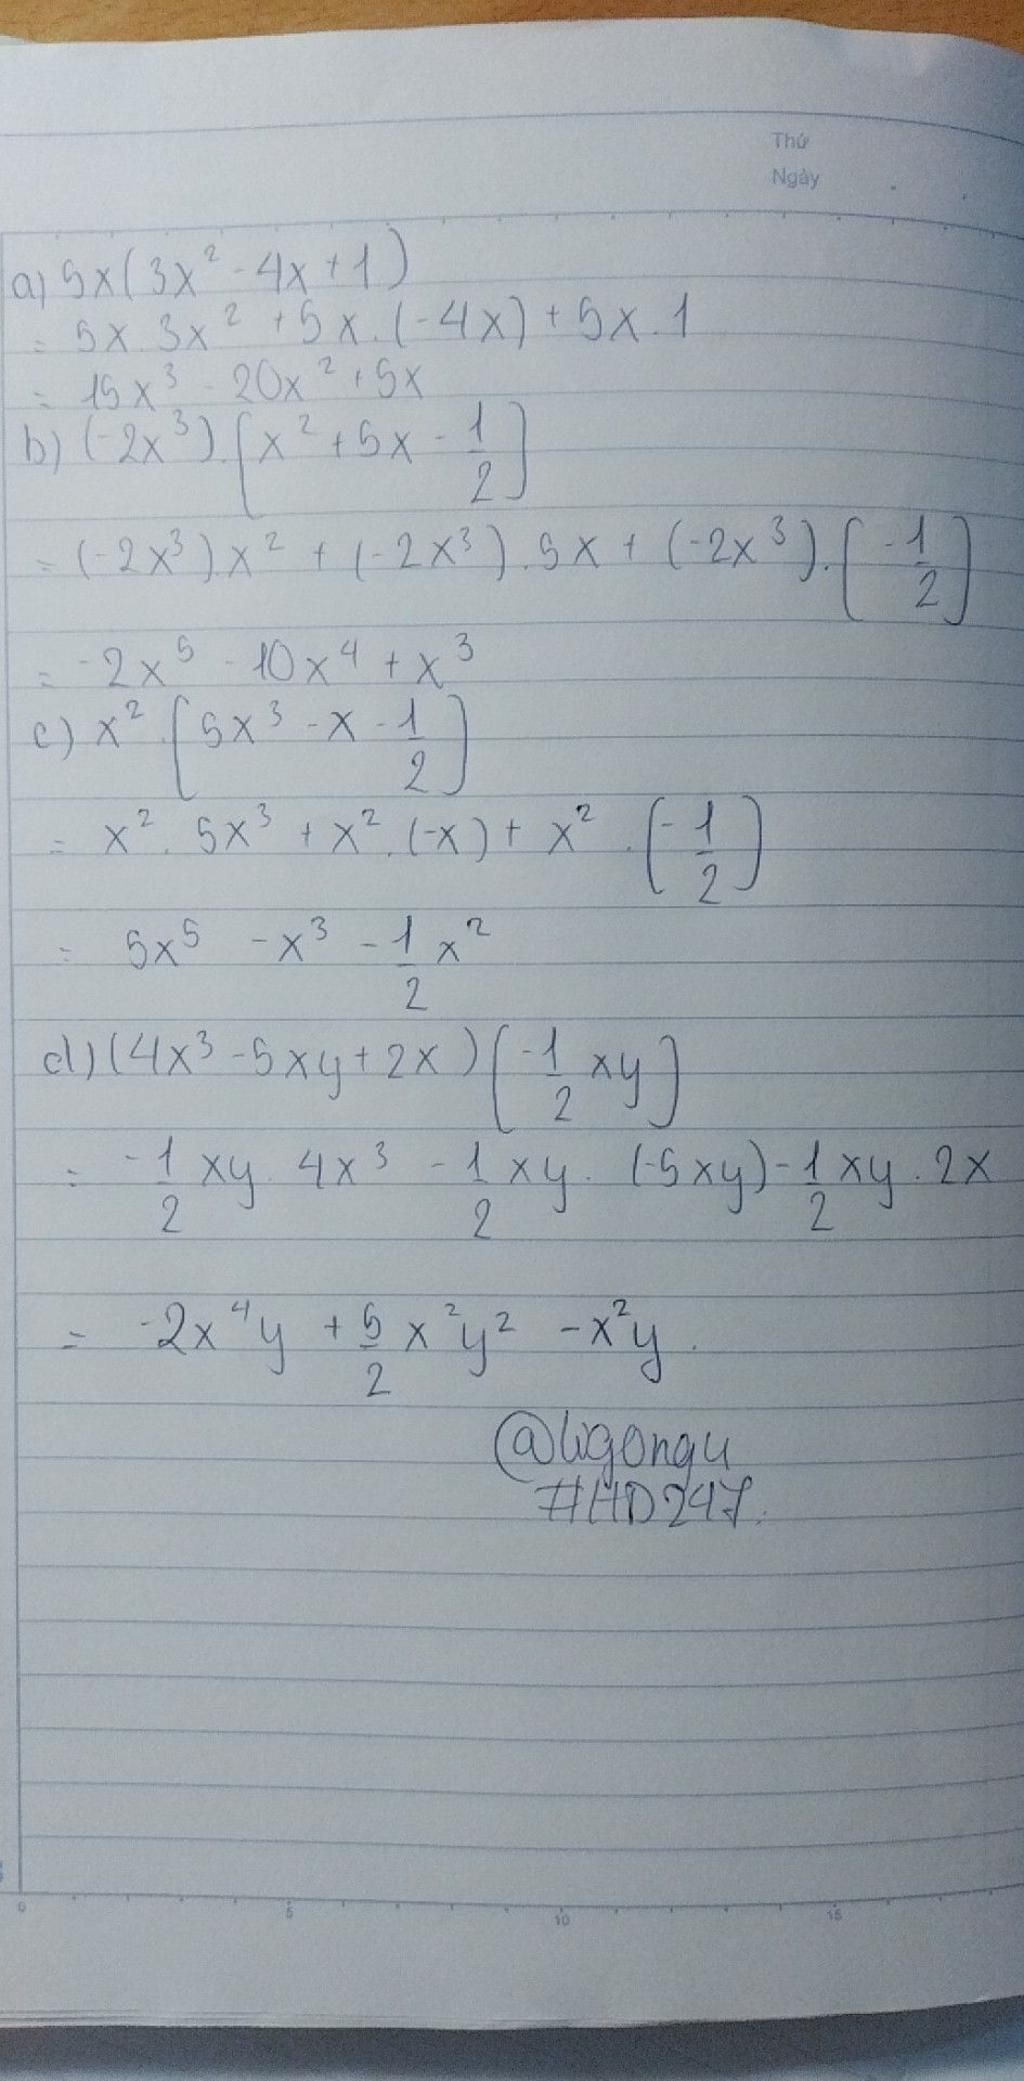 Thứ
Ngày
a) 5x(3x² - 4x + 1)
= 5x. 3x² + 5x. (-4x) + 5x. 1
= 15x³ - 20x² + 5x
b) (-2x³).(x² + 5x - 1/2)
= (-2x³).x² + (-2x³).5x + (-2x³).(-1/2)
= -2x⁵ - 10x⁴ + x³
c) x².(5x³ - x - 1/2)
= x². 5x³ + x². (-x) + x² . (-1/2)
= 5x⁵ - x³ - 1/2 x²
d) (4x³ - 5xy + 2x)(-1/2 xy)
= -1/2 xy. 4x³ - 1/2 xy. (-5xy) - 1/2 xy. 2x
= -2x⁴y + 5/2 x²y² - x²y.
#HD247.
0 5 10 15